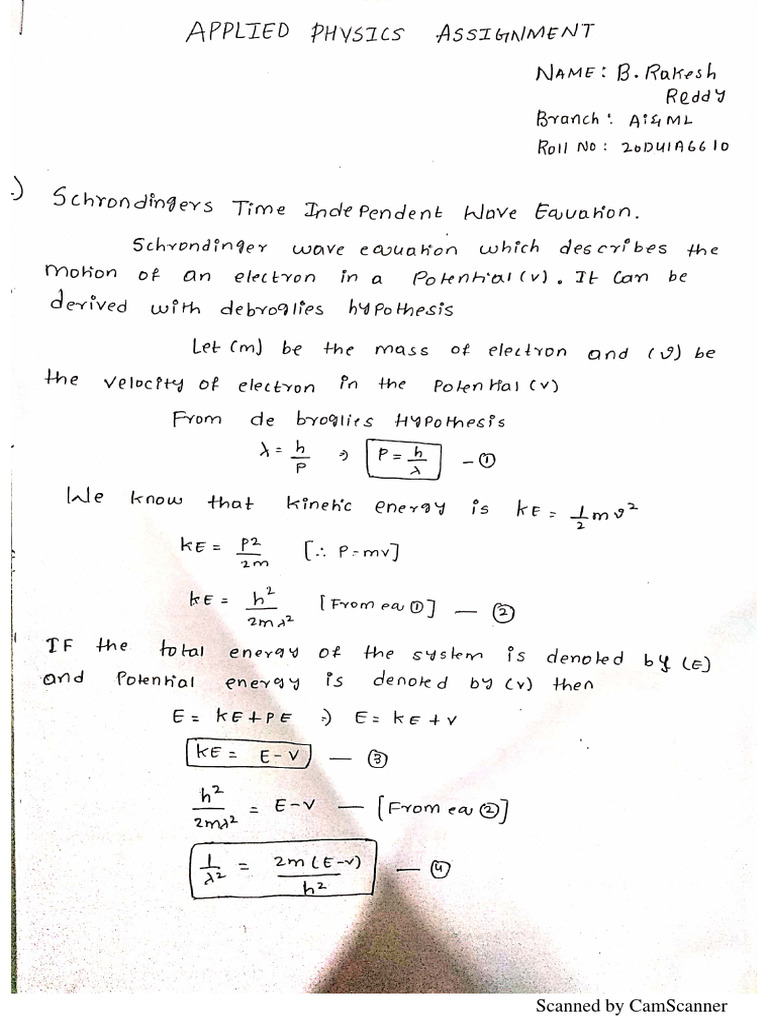 APPLIED PHYSICS ASSIGNMENT
NAME: B. Rakesh
Reddy
Branch: Ai&ML
Roll No: 20D41A6610
.) Schrondingers Time Independent Wave Equation.
Schrondinger wave equation which describes the
motion of an electron in a Potential (v). It can be
derived with debroglies hypothesis
Let (m) be the mass of electron and (ϑ) be
the velocity of electron in the Potential (v)
From de broglies Hypothesis
λ = h/P ⇒ P = h/λ — ①
We know that kinetic energy is kE = 1/2 m ϑ²
KE = P2/2m [∴ P=mv]
KE = h²/2mλ² [From eq ①] — ②
IF the total energy of the system is denoted by (E)
and Potential energy is denoted by (v) then
E = KE + PE ⇒ E = KE + V
KE = E-V — ③
h²/2mλ² = E-V — [From eq ②]
1/λ² = 2m(E-V)/h² — ④
Scanned by CamScanner